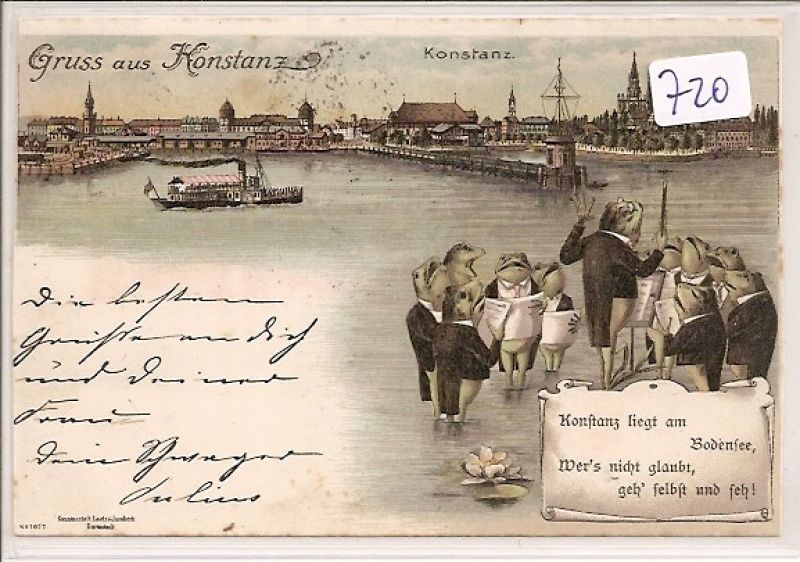 Gruss aus Konstanz
Konstanz.
720
Die besten
Grüße an dich
und deine
Frau
dein Schwager
Julius
Konſtanz liegt am
Bodenſee,
Wer's nicht glaubt,
geh' ſelbſt und ſeh!
Kunstanstalt Lautz & Jsenbeck
Darmstadt.